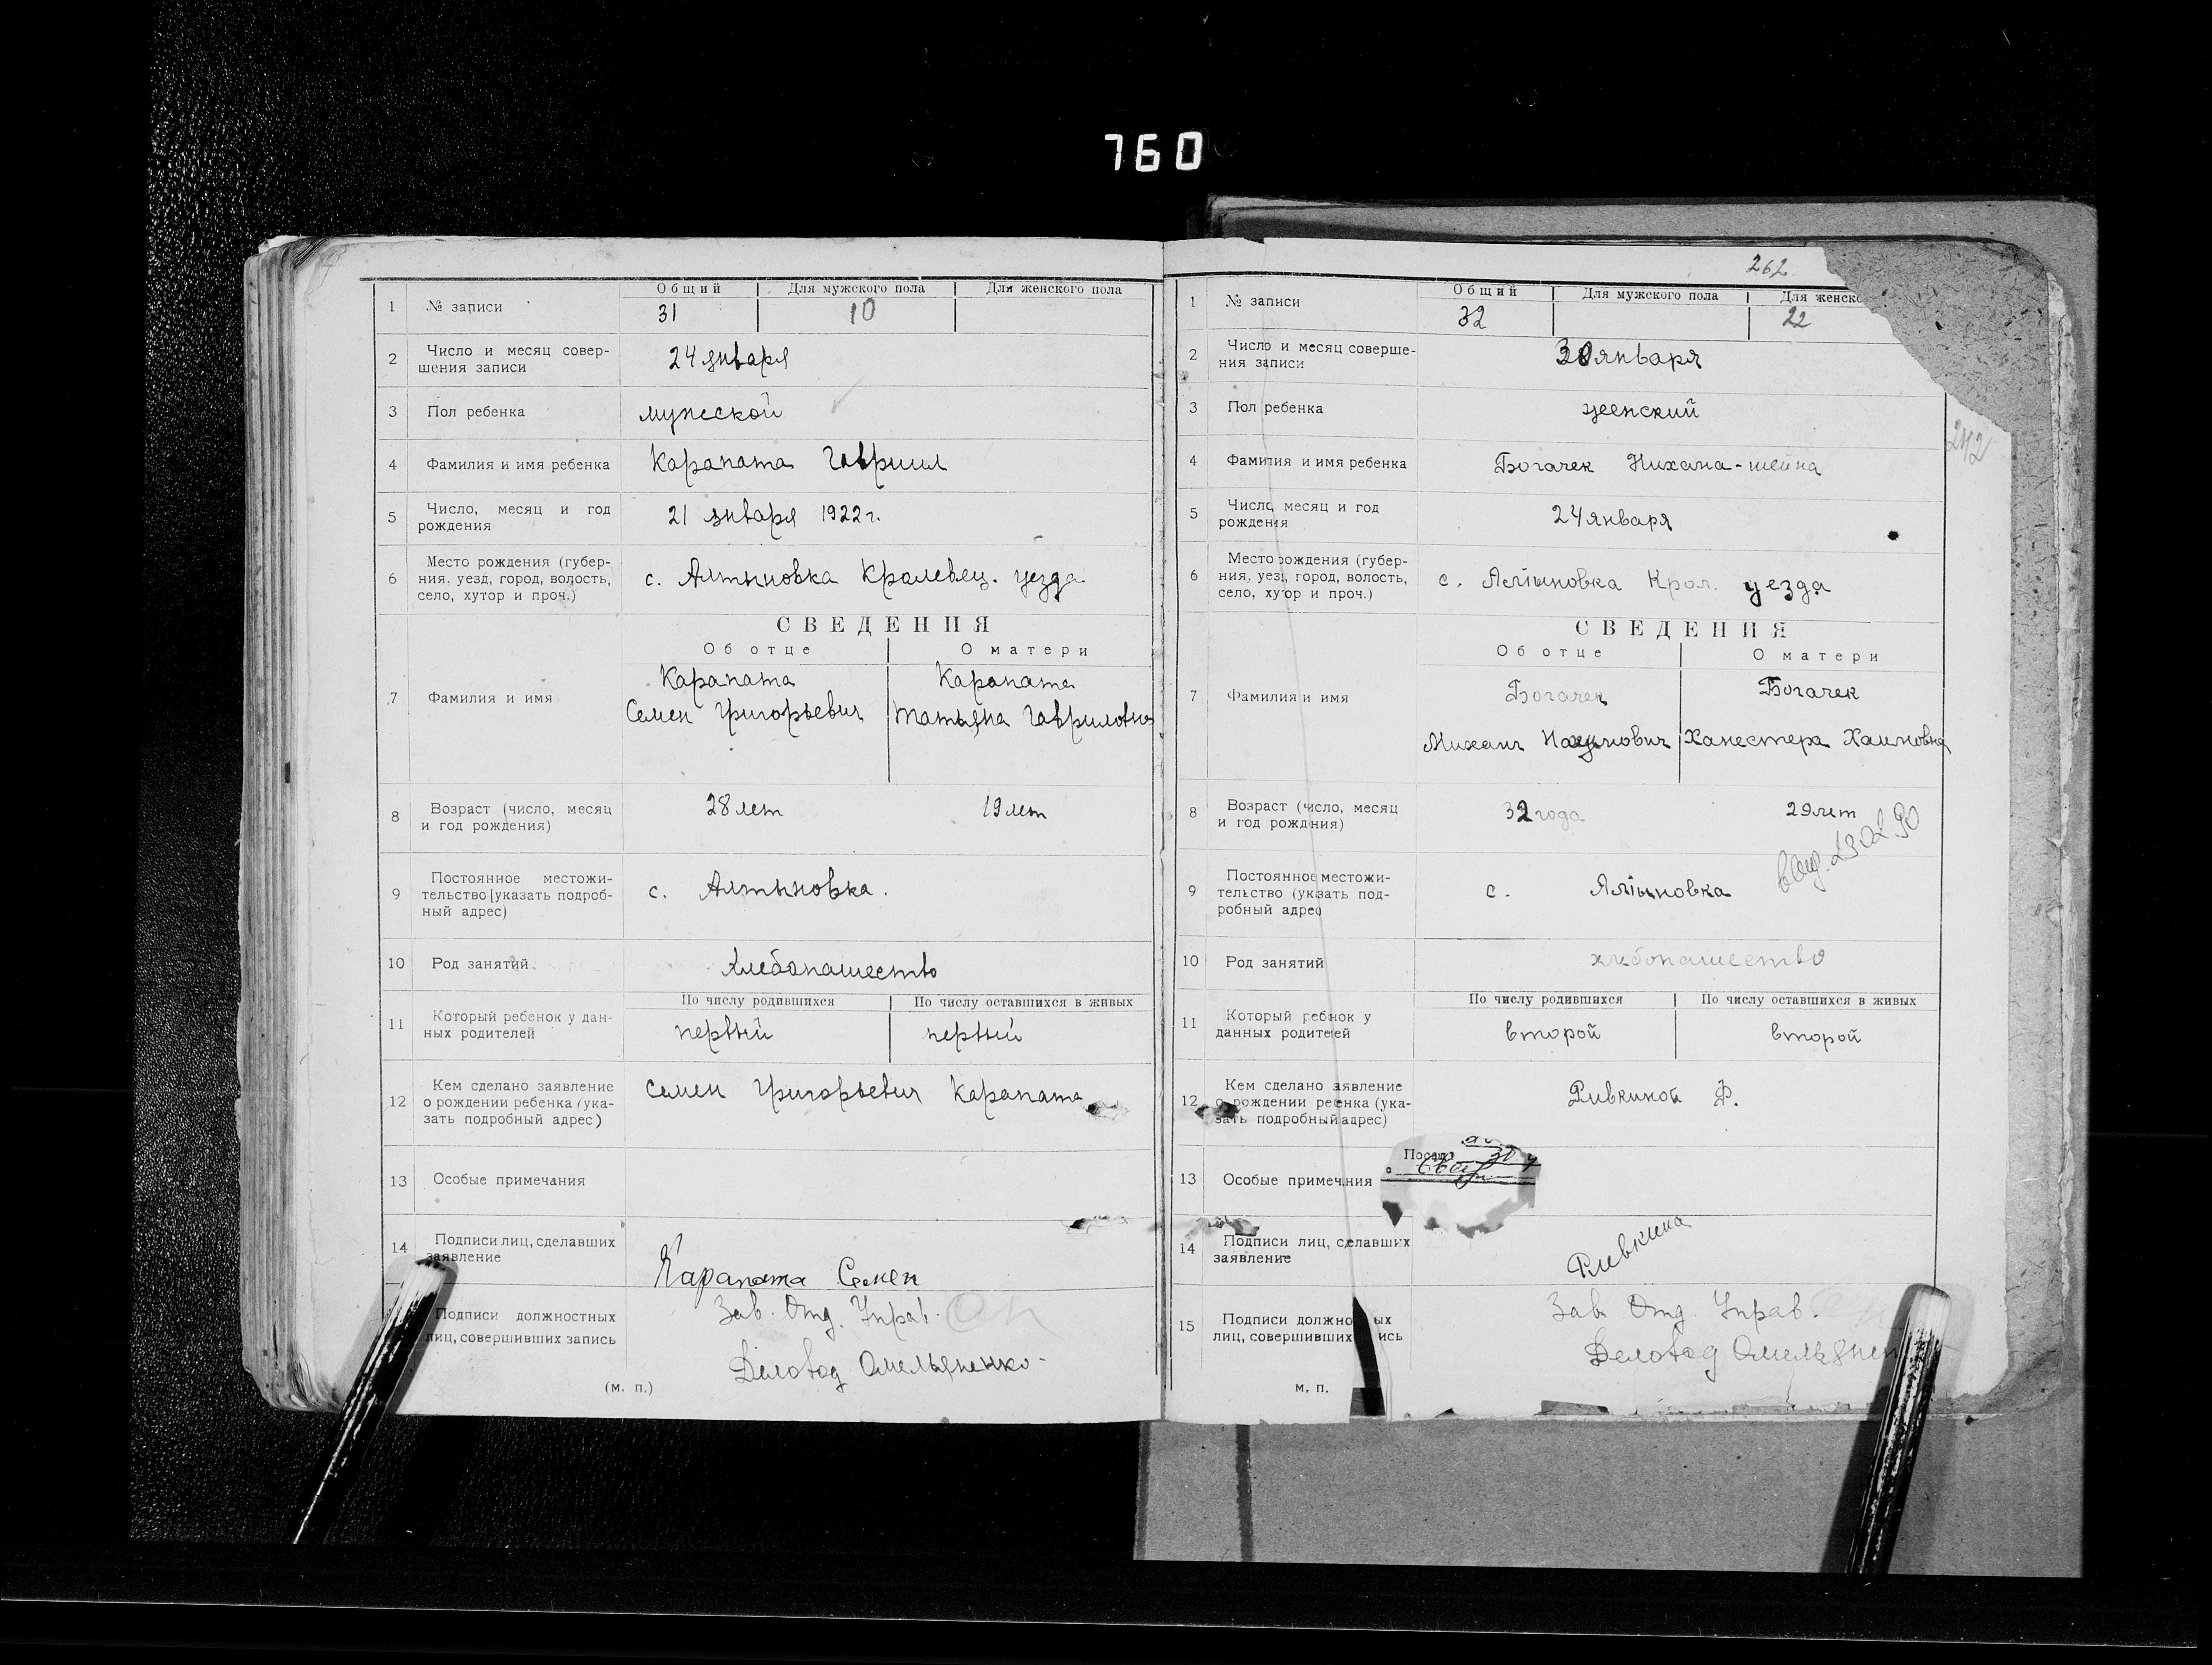 760
1 № записи Общий Для мужского пола Для женского пола
31 10
2 Число и месяц совер-
шения записи 24 января
3 Пол ребенка мужеской
4 Фамилия и имя ребенка Карапата Гавриил
5 Число, месяц и год
рождения 21 января 1922 г.
6 Место рождения (губер-
ния, уезд, город, волость,
село, хутор и проч.) с. Алтыновка Кролевец. уезда
СВЕДЕНИЯ
Об отце О матери
7 Фамилия и имя
Карапата Карапата
Семен Григорьевич Татьяна Гавриловна
8 Возраст (число, месяц
и год рождения) 28 лет 19 лет
9 Постоянное местожи-
тельство (указать подроб-
ный адрес) с. Алтыновка.
10 Род занятий хлебопашество
По числу родившихся По числу оставшихся в живых
11 Который ребенок у дан-
ных родителей первый первый
12 Кем сделано заявление
о рождении ребенка (ука-
зать подробный адрес) Семен Григорьевич Карапата
13 Особые примечания
14 Подписи лиц, сделавших
заявление Карапата Семен
Подписи должностных
лиц, совершивших запись
Зав. Отд. Управ.
Деловод Омельяненко
(м. п.)
262
1 № записи Общий Для мужского пола Для женско
32 22
2 Число и месяц соверше-
ния записи 30 января
3 Пол ребенка женский
4 Фамилия и имя ребенка Богачек Нихама-шейна
242
5 Число, месяц и год
рождения 24 января
6 Место рождения (губер-
ния, уезд, город, волость,
село, хутор и проч.) с. Алтыновка Крол. уезда
СВЕДЕНИЯ
Об отце О матери
7 Фамилия и имя
Богачек Богачек
Михаил Ханестера Хаимовна
8 Возраст (число, месяц
и год рождения) 32 года 29 лет
9 Постоянное местожи-
тельство (указать под-
робный адрес) с. Алтыновка
10 Род занятий хлебопашество
По числу родившихся По числу оставшихся в живых
11 Который ребенок у
данных родителей второй второй
12 Кем сделано заявление
о рождении ребенка (ука-
зать подробный адрес) Ривкиной Ф.
13 Особые примечания
14 Подписи лиц, сделавших
заявление Ривкина
15 Подписи должно ых
лиц, совершивших ись
Зав. Отд. Управ.
Деловод Омельянен
м. п.